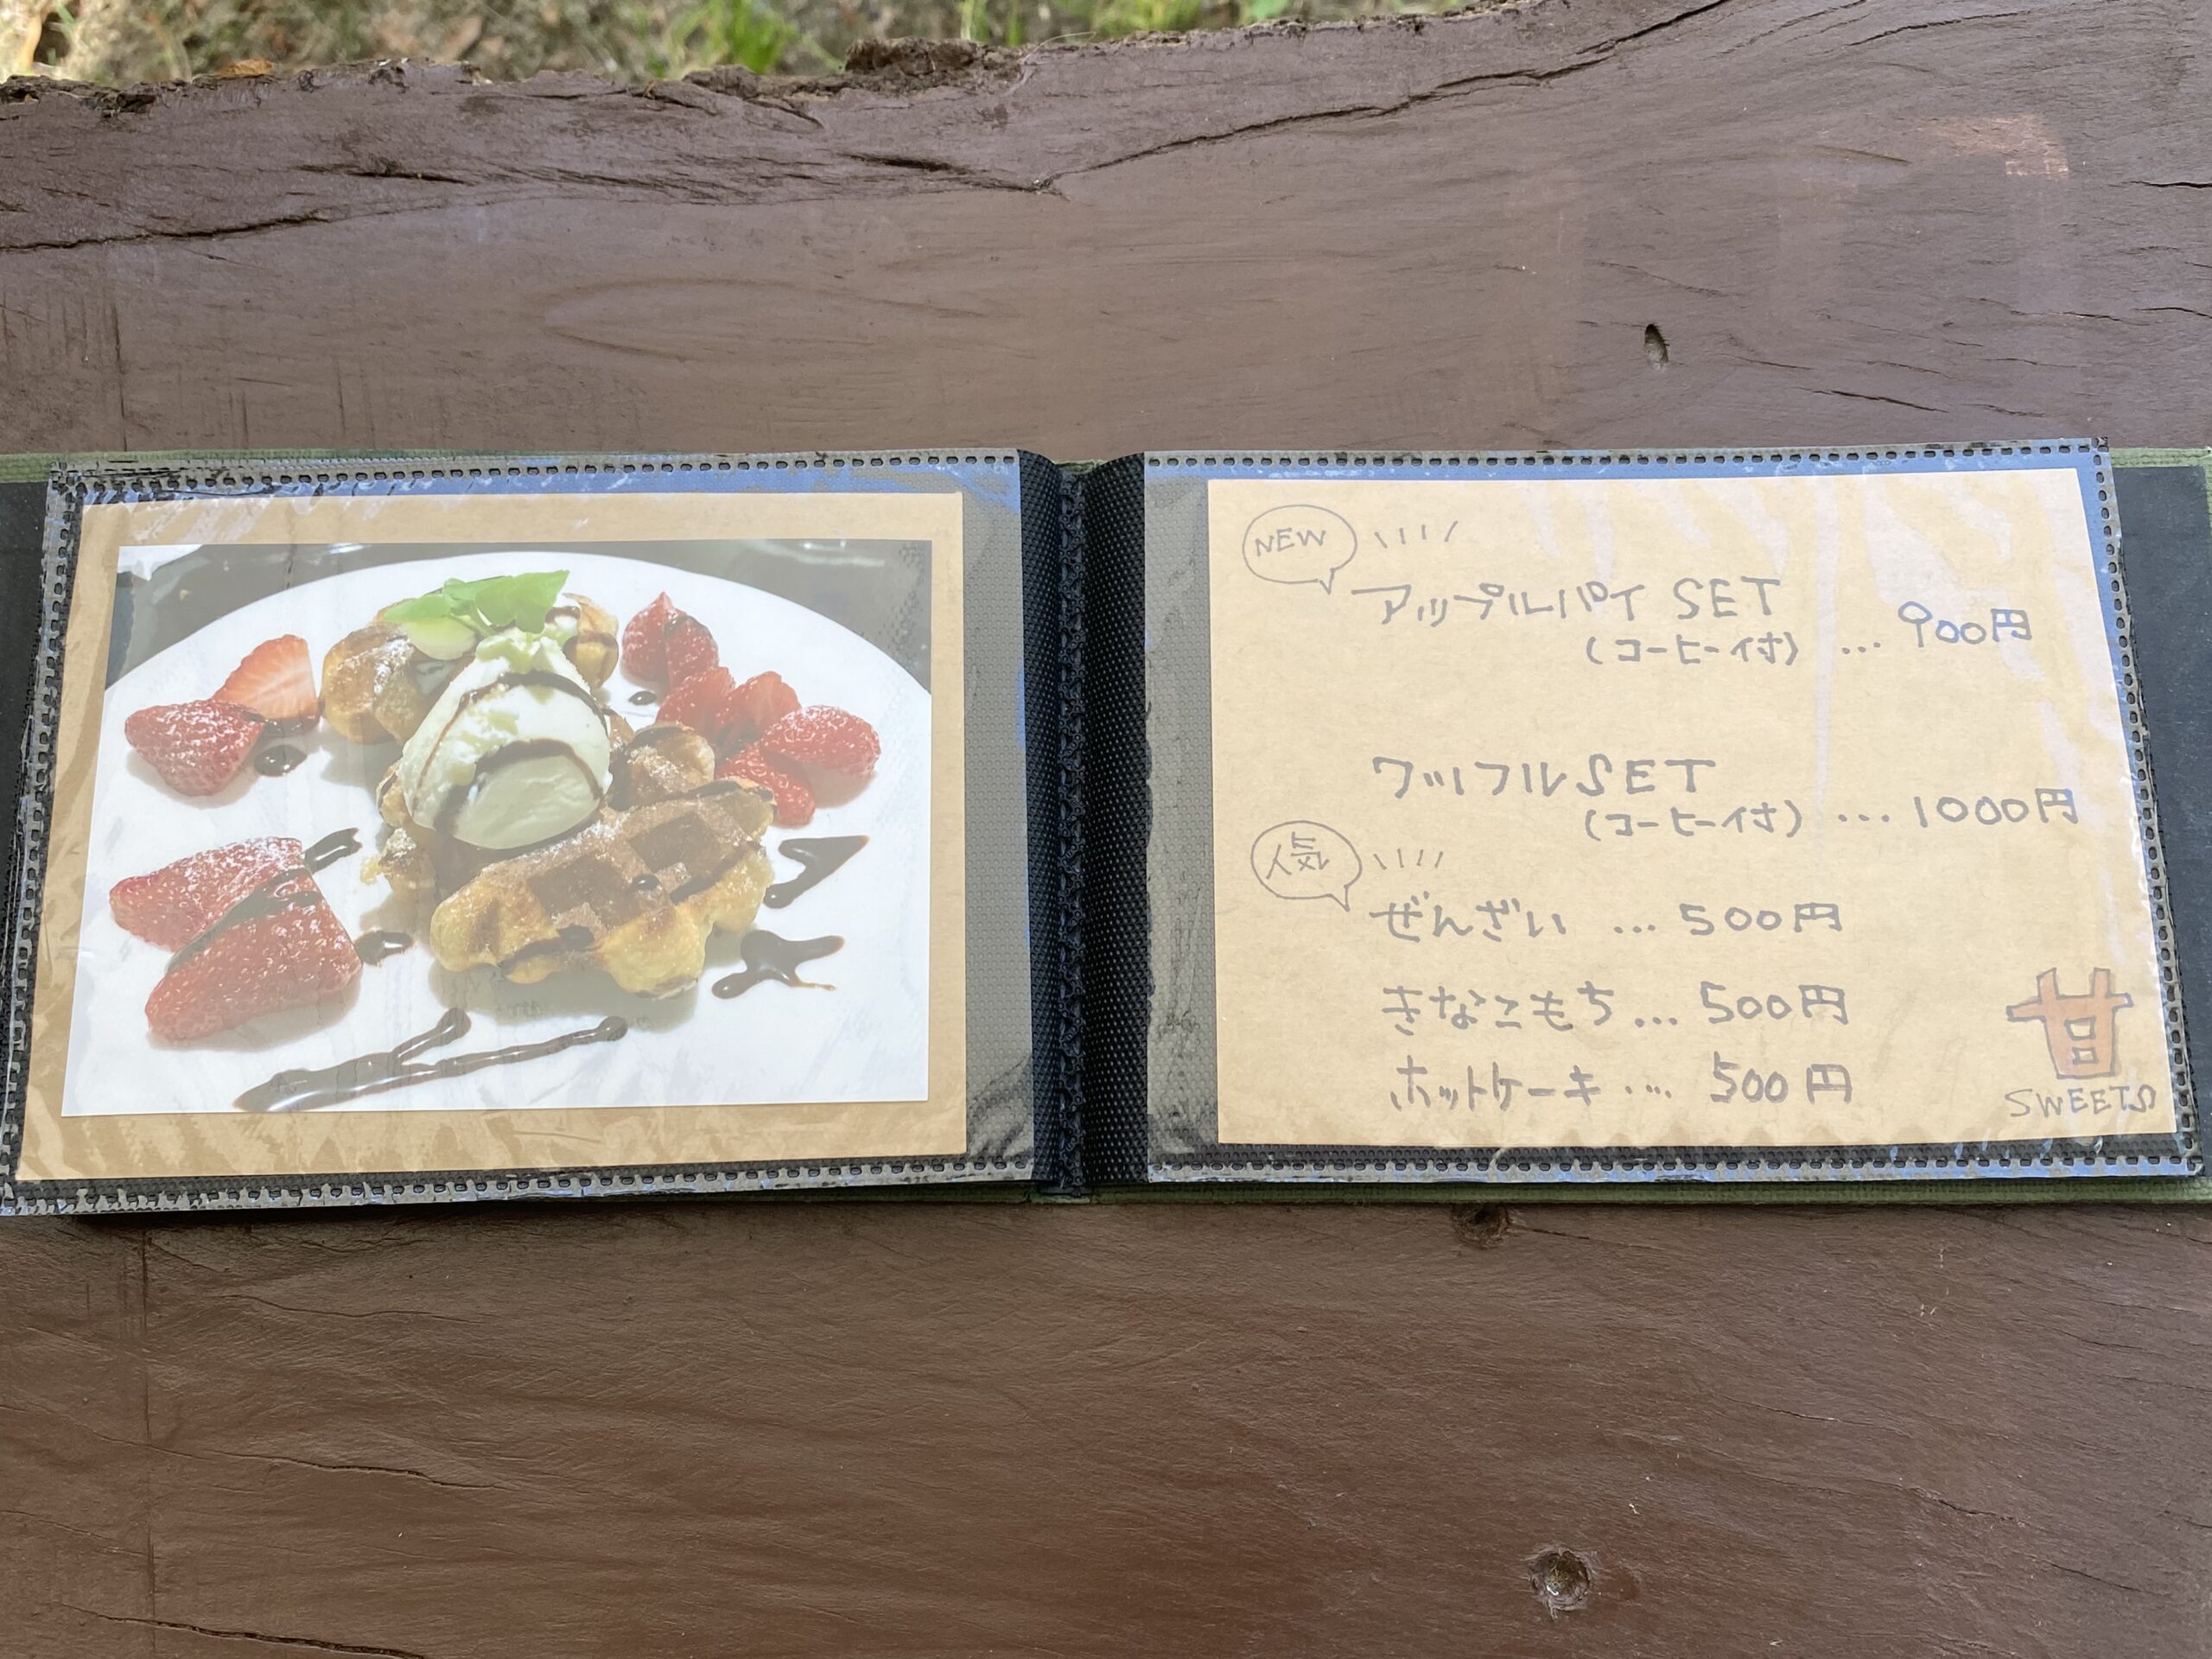 NEW
アップルパイ SET
(コーヒー付) ... 900円
ワッフルSET
(コーヒー付) ... 1000円
人気
ぜんざい ... 500円
きなこもち ... 500円
ホットケーキ ... 500円
甘
SWEETS